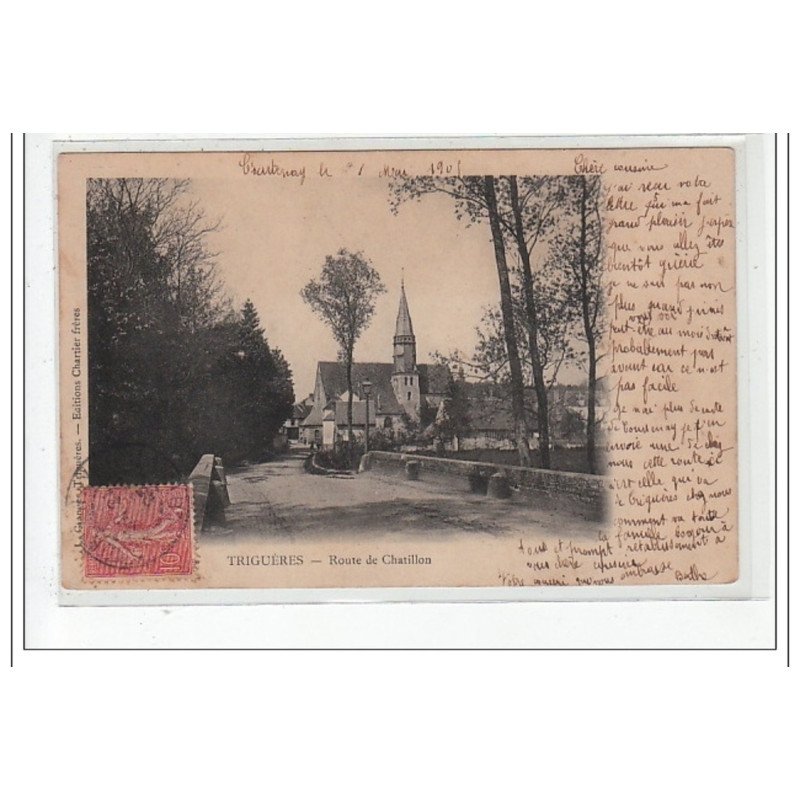 Courtenay le 1 Mai 1905
Chère cousine
j'ai reçu votre
lettre qui ma fait
grand plaisir j'espèr
que vous allez être
bientôt guérie
je ne sait pas non
plus quand j'irais
vous voir
peut-être au mois
probablement pas
avant car ce n'est
pas facile
Je n'ai plus de carte
de Courtenay je t'en
envoie une de chez
nous cette route
est celle qui va
de Triguères chez nous
comment va toute
la famille bonjour à
tous et prompt rétablissement à
vous chère cousine
Votre cousine qui vous embrasse Berthe
Triguères. — Editions Chartier frères
TRIGUÈRES — Route de Chatillon
10